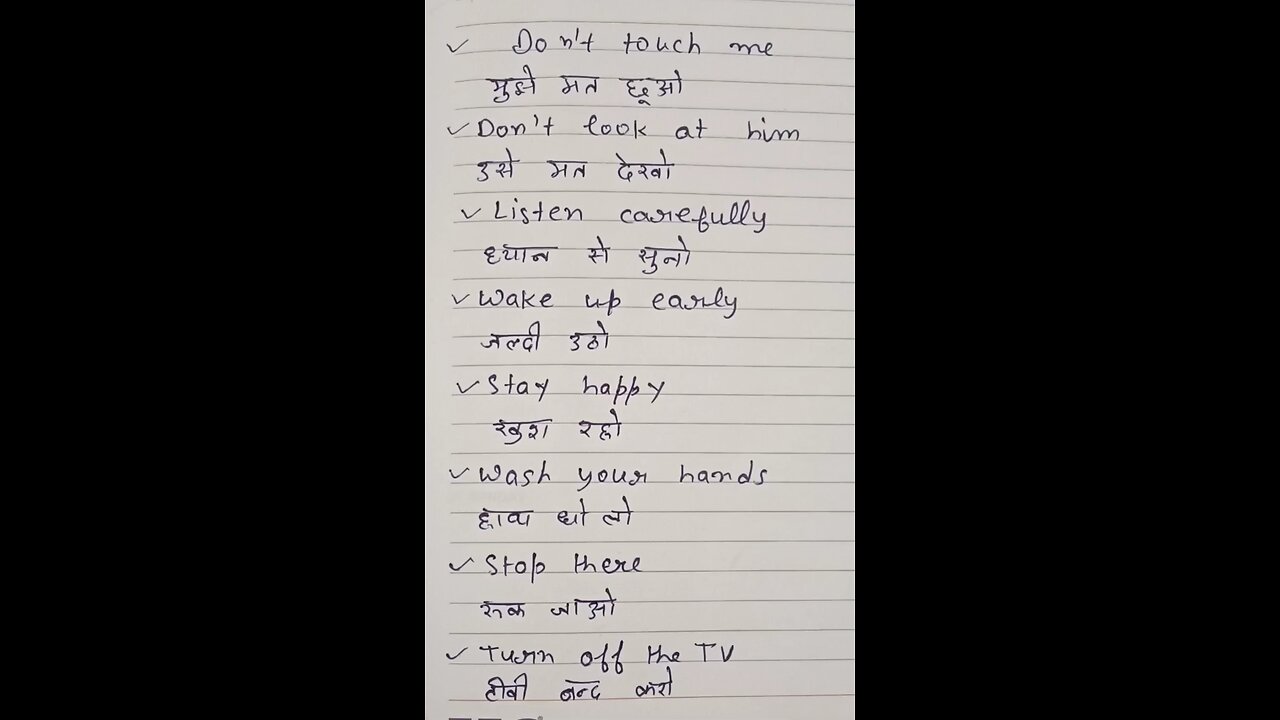 ✓ Don't touch me
मुझे मत छूओ
✓ Don't look at him
उसे मत देखो
✓ Listen carefully
ध्यान से सुनो
✓ Wake up early
जल्दी उठो
✓ Stay happy
खुश रहो
✓ Wash your hands
हाथ धो लो
✓ Stop there
रूक जाओ
✓ Turn off the TV
टीवी बन्द करो